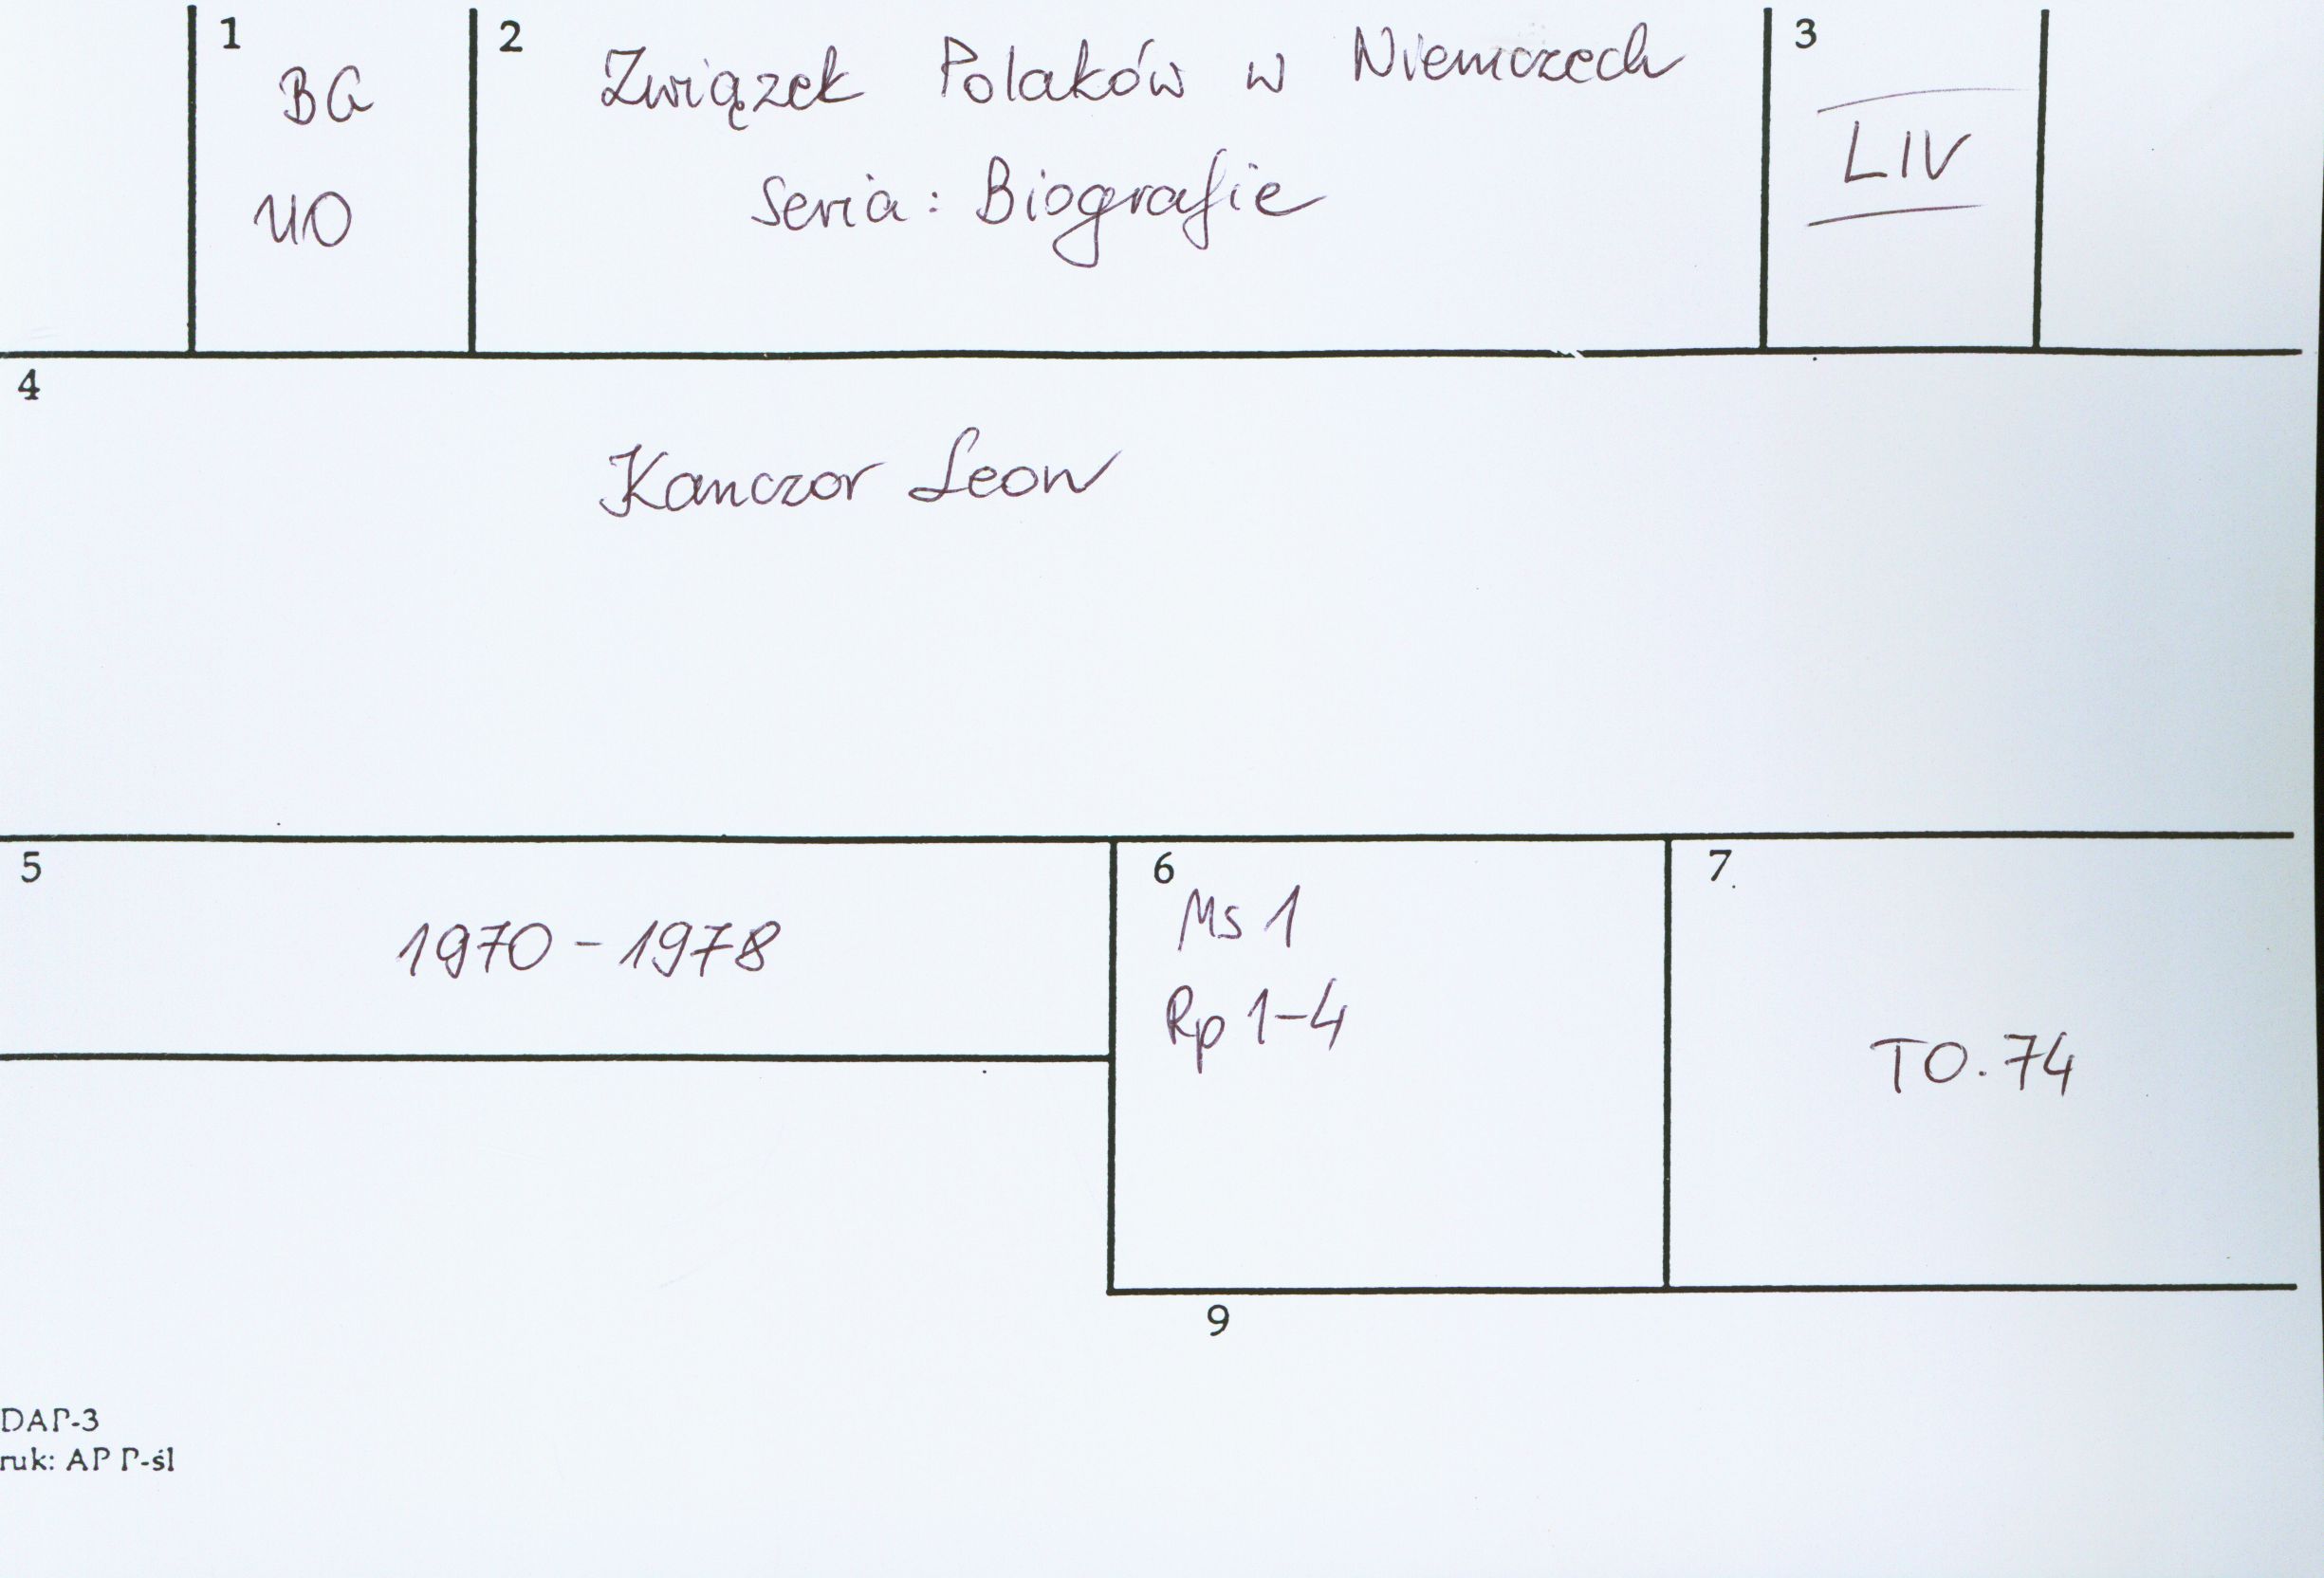 1
BG
UO
2
Związek Polaków w Niemczech
Seria: Biografie
3
LIV
4
Kanczor Leon
5
1970-1978
6
Ms 1
Rp 1-4
7
TO.74
9
DAP-3
ruk: AP P-śl